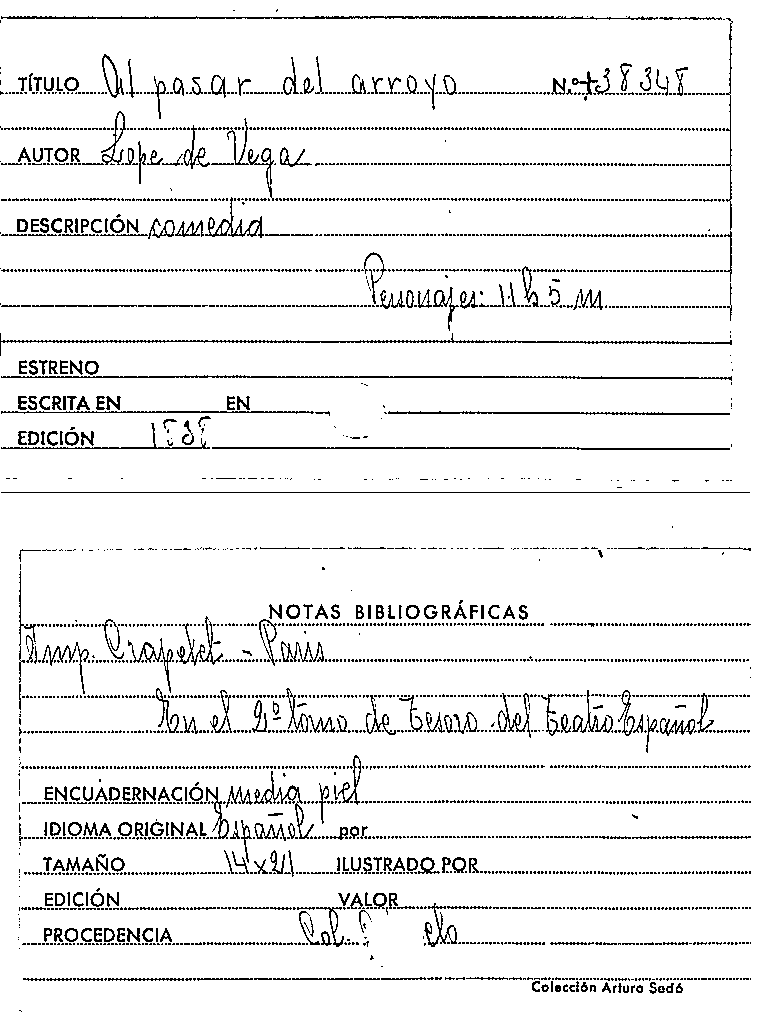 TÍTULO Al pasar del arroyo N.º +38348
AUTOR Lope de Vega
DESCRIPCIÓN comedia
Personajes: 11 h 5 m
ESTRENO
ESCRITA EN EN
EDICIÓN
NOTAS BIBLIOGRÁFICAS
Imp. Crapelet - Paris
En el 2º tomo de Tesoro del Teatro Español
ENCUADERNACIÓN media piel
IDIOMA ORIGINAL Español por
TAMAÑO 14x21 ILUSTRADO POR
EDICIÓN VALOR
PROCEDENCIA Col.
Colección Arturo Sedó